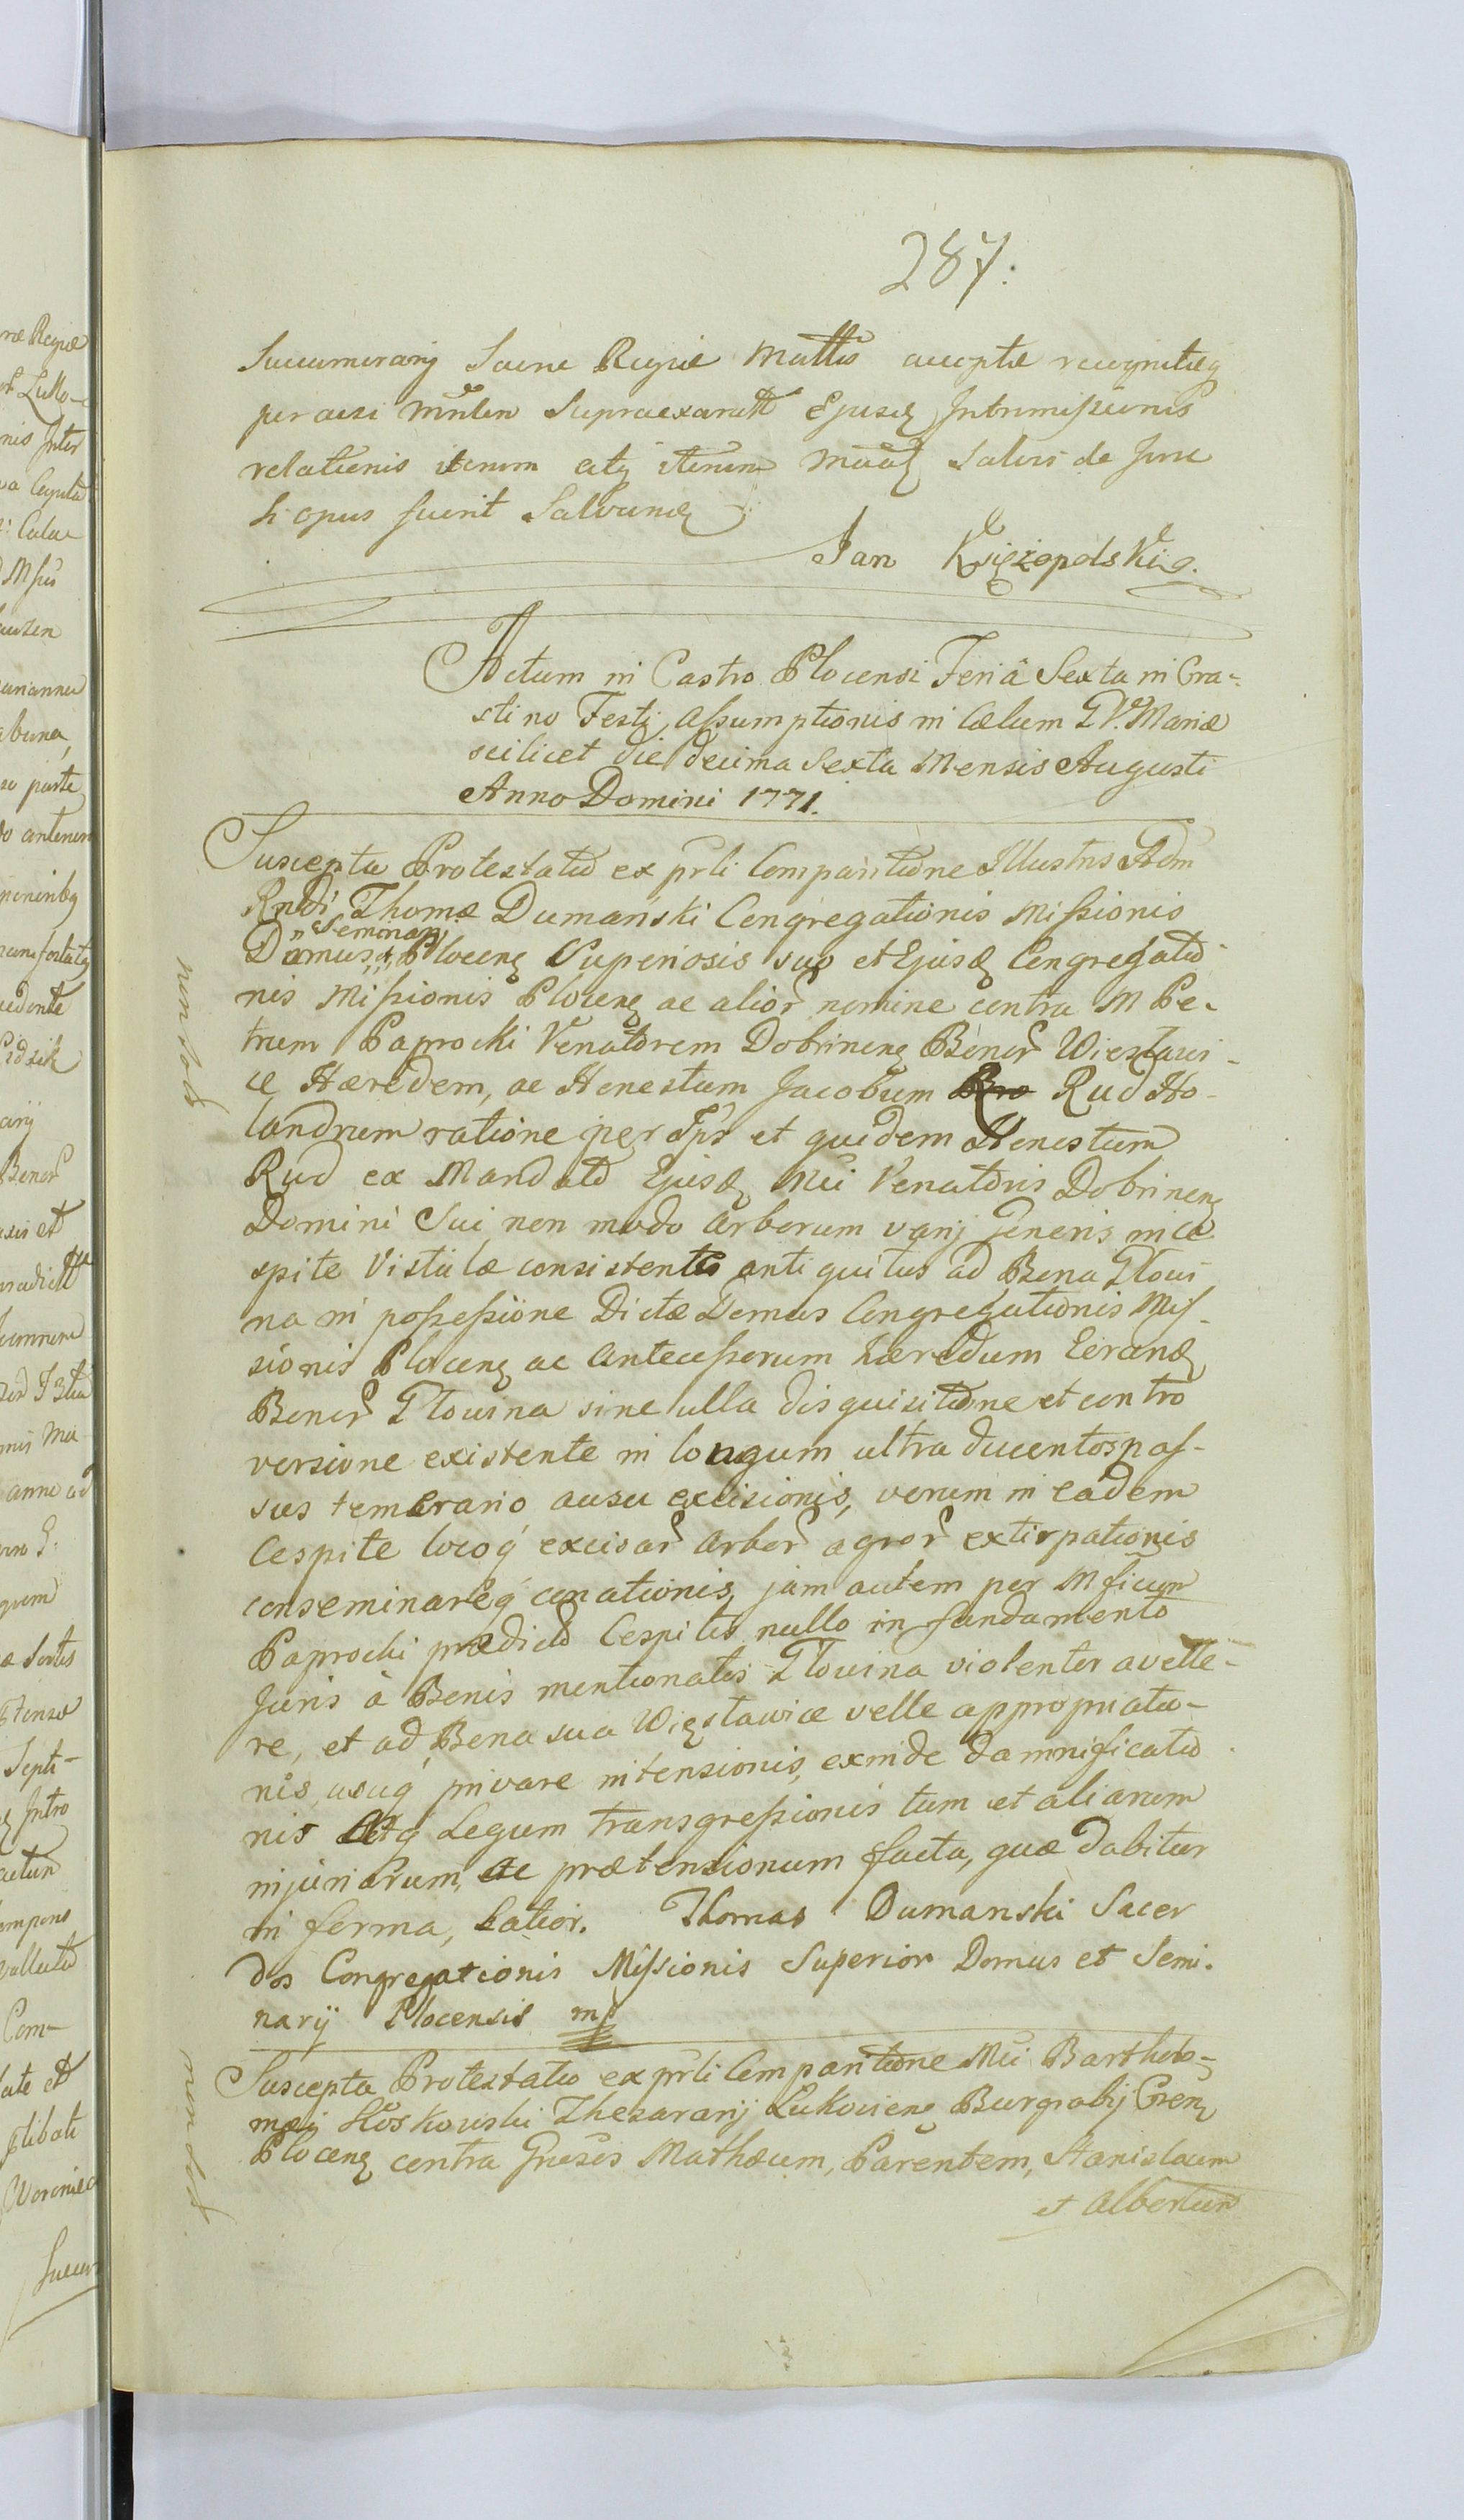 287.
Succamerarij Sacrae Regiae Mattis acceptae recognitaeq
per acsi Mnlem Supraexaratt Ejusq Intromissionis
relationis iterum atq iterum salvis de Jure
si opus fuerit Salvandq
Jan Księżopolski
Actum in Castro Plocensi Feriâ Sexta in Cra-
stino Festi Assumptionis in Caelum BV. Mariae
scilicet die decima Sexta Mensis Augusti
Anno Domini 1771.
Suscepta Protestatio ex prli Comparitione Illustris Adm
Rndi Thomae Dumański Congregationis Missionis
Seminarij
Domus et Plocenq Superiosis suo et Ejusq Congregatio
nis Missionis Plocenq ac alior nomine contra M Pe-
trum Paprocki Venatorem Dobrinenq Bonor Więsławi-
ce Haeredem, ac Honestum Jacobum Rud Ho-
landrum ratione per Ipr et quidem Honestum
Rud ex Mandato Ejusq Mci Venatoris Dobrinenq
Domini Sui non modo Arborum varij generis in Ce
spite Vistulae consistentis antiquitus ad Bona Głowi
na in possessione Dictae Domus Congregationis Mis-
sionis Plocenq ac Antecessorum haeredum Eorundq
Bonor Głowina sine ulla disquisitione et contro
versione existente in longum ultra ducentos pas-
sus temerario ausu excisionis, verum in eadem
Cespite locoq excisar Arbor agror extirpationis
conseminareq conationis, jam autem per Mficum
Paprocki praedicto Cespitis nullo in fundamento
Juris à Bonis mentionatis Głowina violenter avelle-
re, et ad Bona sua Więsławice velle appropriatio-
nis, usuq privare intensionis, exinde damnificatio
nis Atq Legum transgressionis tum et aliarum
injuriarum, ac praetensionum facta, quae dabitur
in forma, latior. Thomas Dumanski Sacer
dos Congregationis Missionis Superior Domus et Semi-
narij Plocensis mp
Suscepta Protestatio ex prli Comparitione Mci Bartholo-
maei Kłoskowski Thesaurarij Lukovienq Burgrabij Cren
Plocenq contra Gnosos Mathaeum, Parentem, Stanislaum
et Albertum